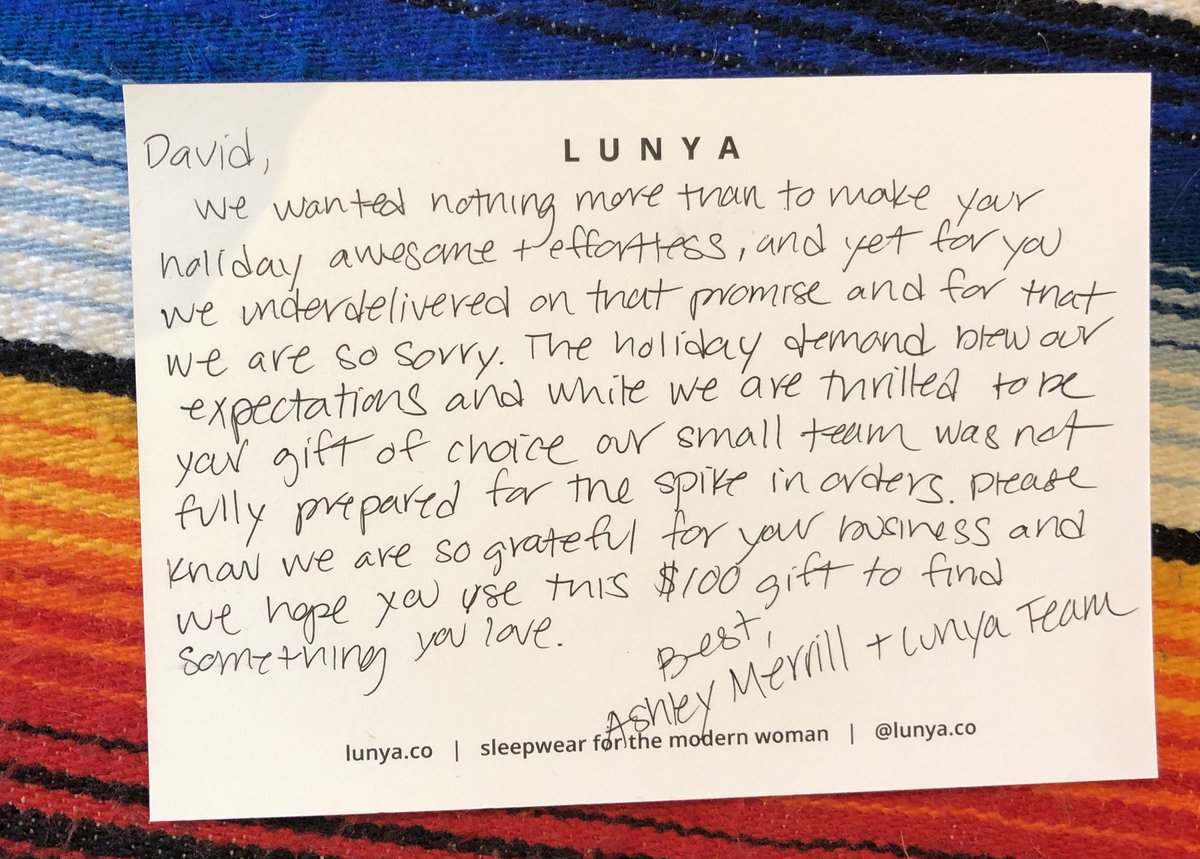 LUNYA
David,
We wanted nothing more than to make your
holiday awesome + effortless, and yet for you
we underdelivered on that promise and for that
we are so sorry. The holiday demand blew our
expectations and while we are thrilled to be
your gift of choice our small team was not
fully prepared for the spike in orders. Please
know we are so grateful for your business and
we hope you use this $100 gift to find
something you love.
Best,
Ashley Merrill + Lunya Team
lunya.co | sleepwear for the modern woman | @lunya.co